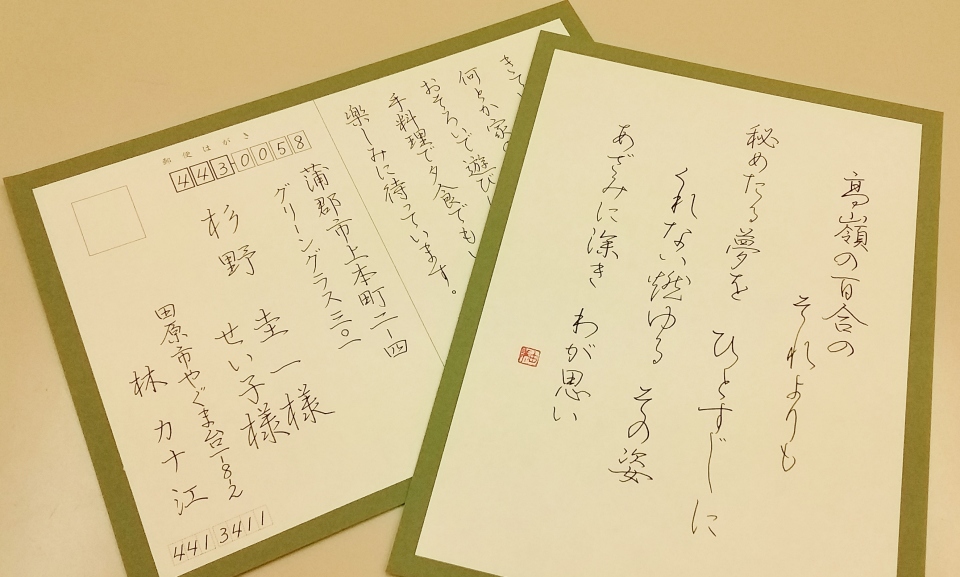 高嶺の百合の
それよりも
秘めたる夢を
ひとすじに
くれない燃ゆる
その姿
あざみに深き
わが思い
郵便はがき
443-0058
蒲郡市上本町二-四
グリーングラス三〇一
杉野 圭一様
せい子様
田原市やぐま台一-8-2
林 カナ江
4413411
きて、
何とか家の
おそろいで遊び
手料理で夕食でも
楽しみに待っています。